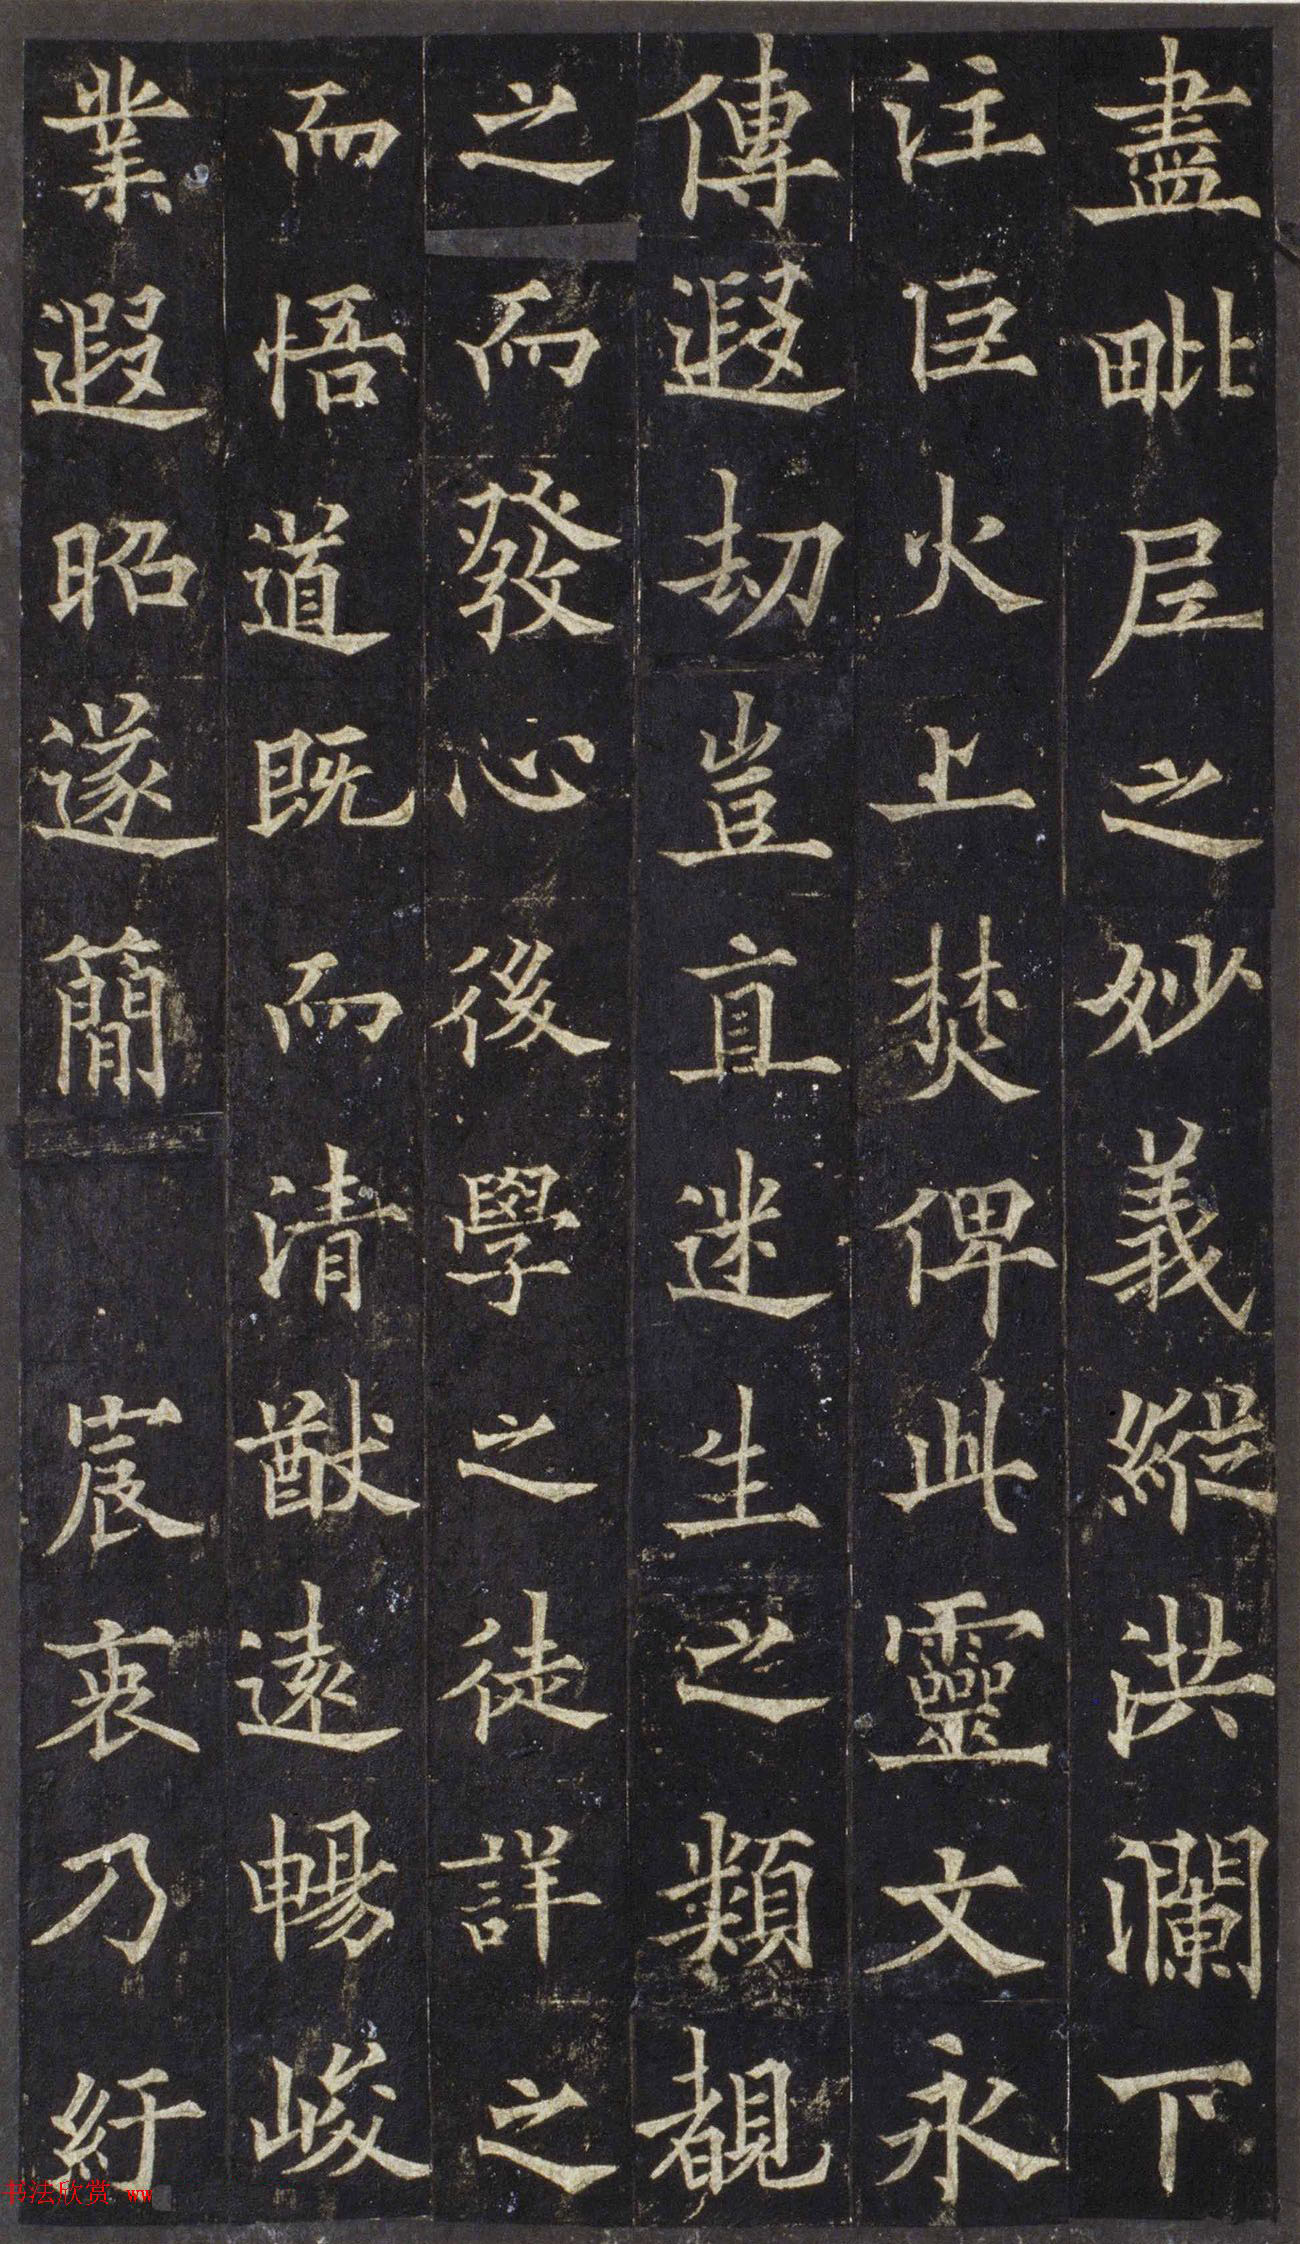 盡毗尼之妙義縱洪瀾下
注巨火上焚俾此靈文永
傳遐劫豈直迷生之類覩
之而發心後學之徒詳之
而悟道既而清猷遠暢峻
業遐昭遂簡宸衷乃紆
书法欣赏 ww